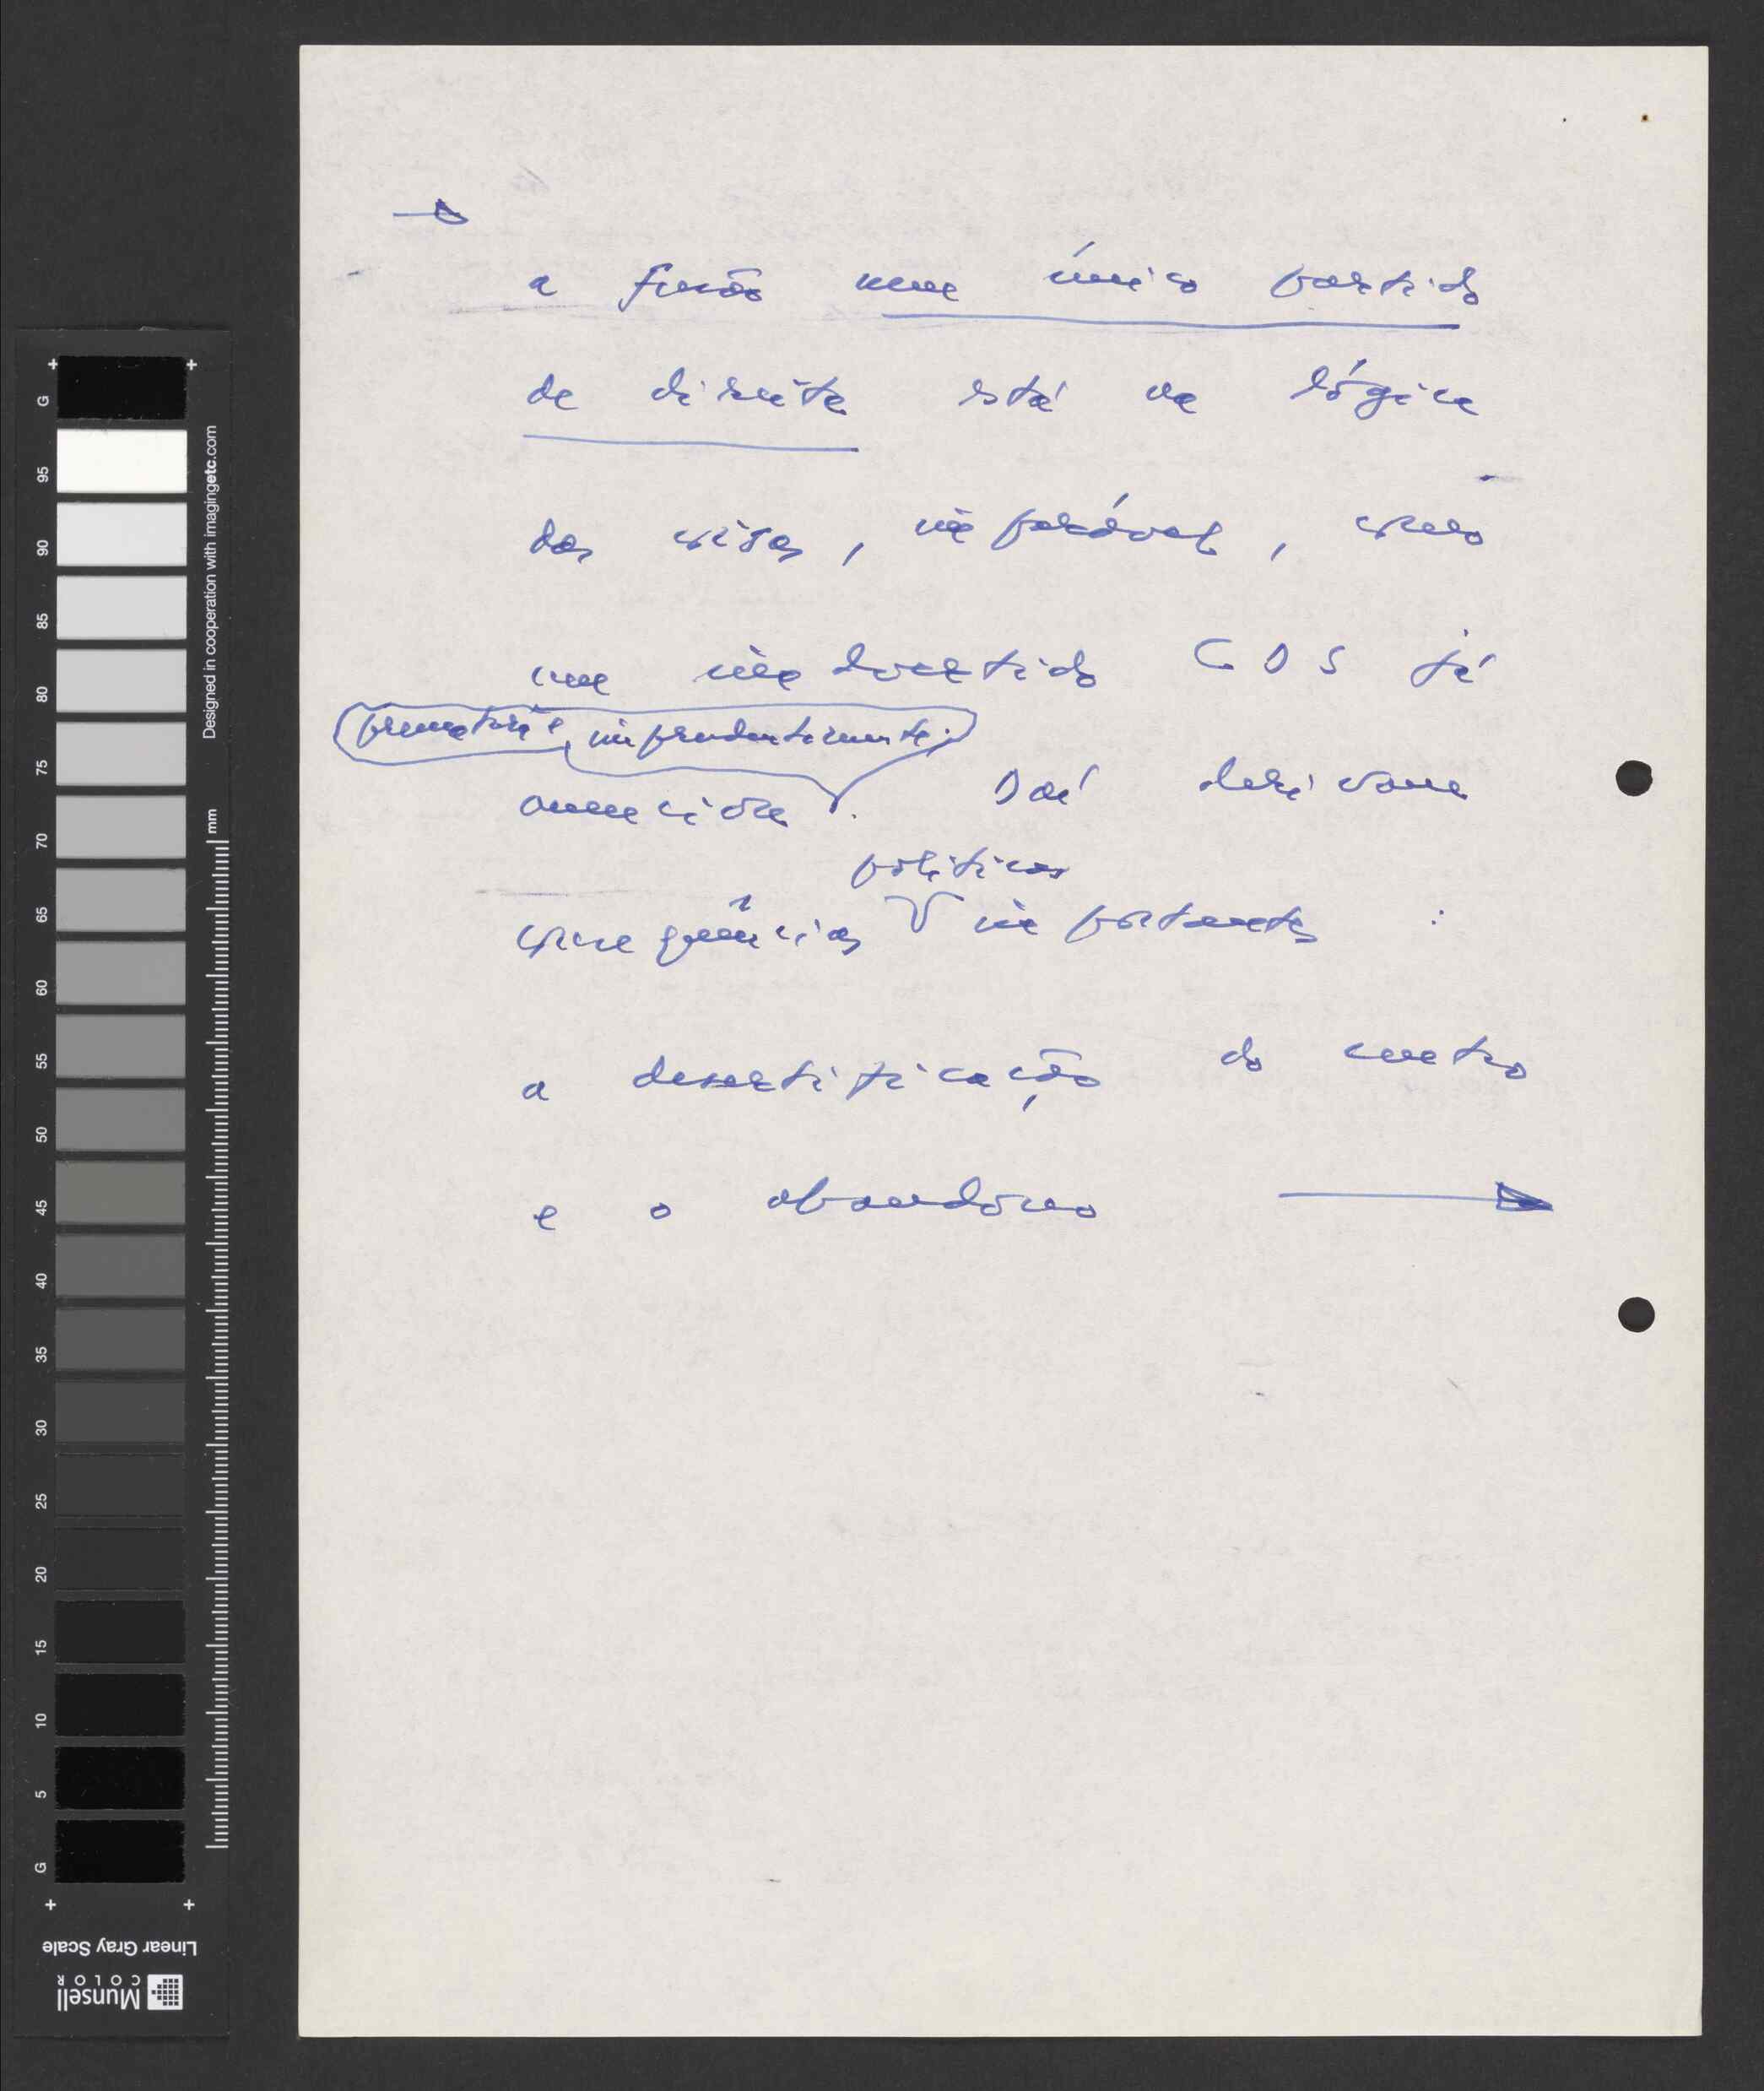 a fusão num único partido
de direita está na lógica
das coisas, inexorável, como
um inadvertido CDS já
prematura e imprudentemente
anunciou. Daí derivam
políticas
consequências importantes :
a desertificação do centro
e o abandono
G
95
90
85
80
75
70
65
60
55
50
45
40
35
30
25
20
15
10
5
G
mm
Designed in cooperation with imagingetc.com
Linear Gray Scale
Munsell
COLOR